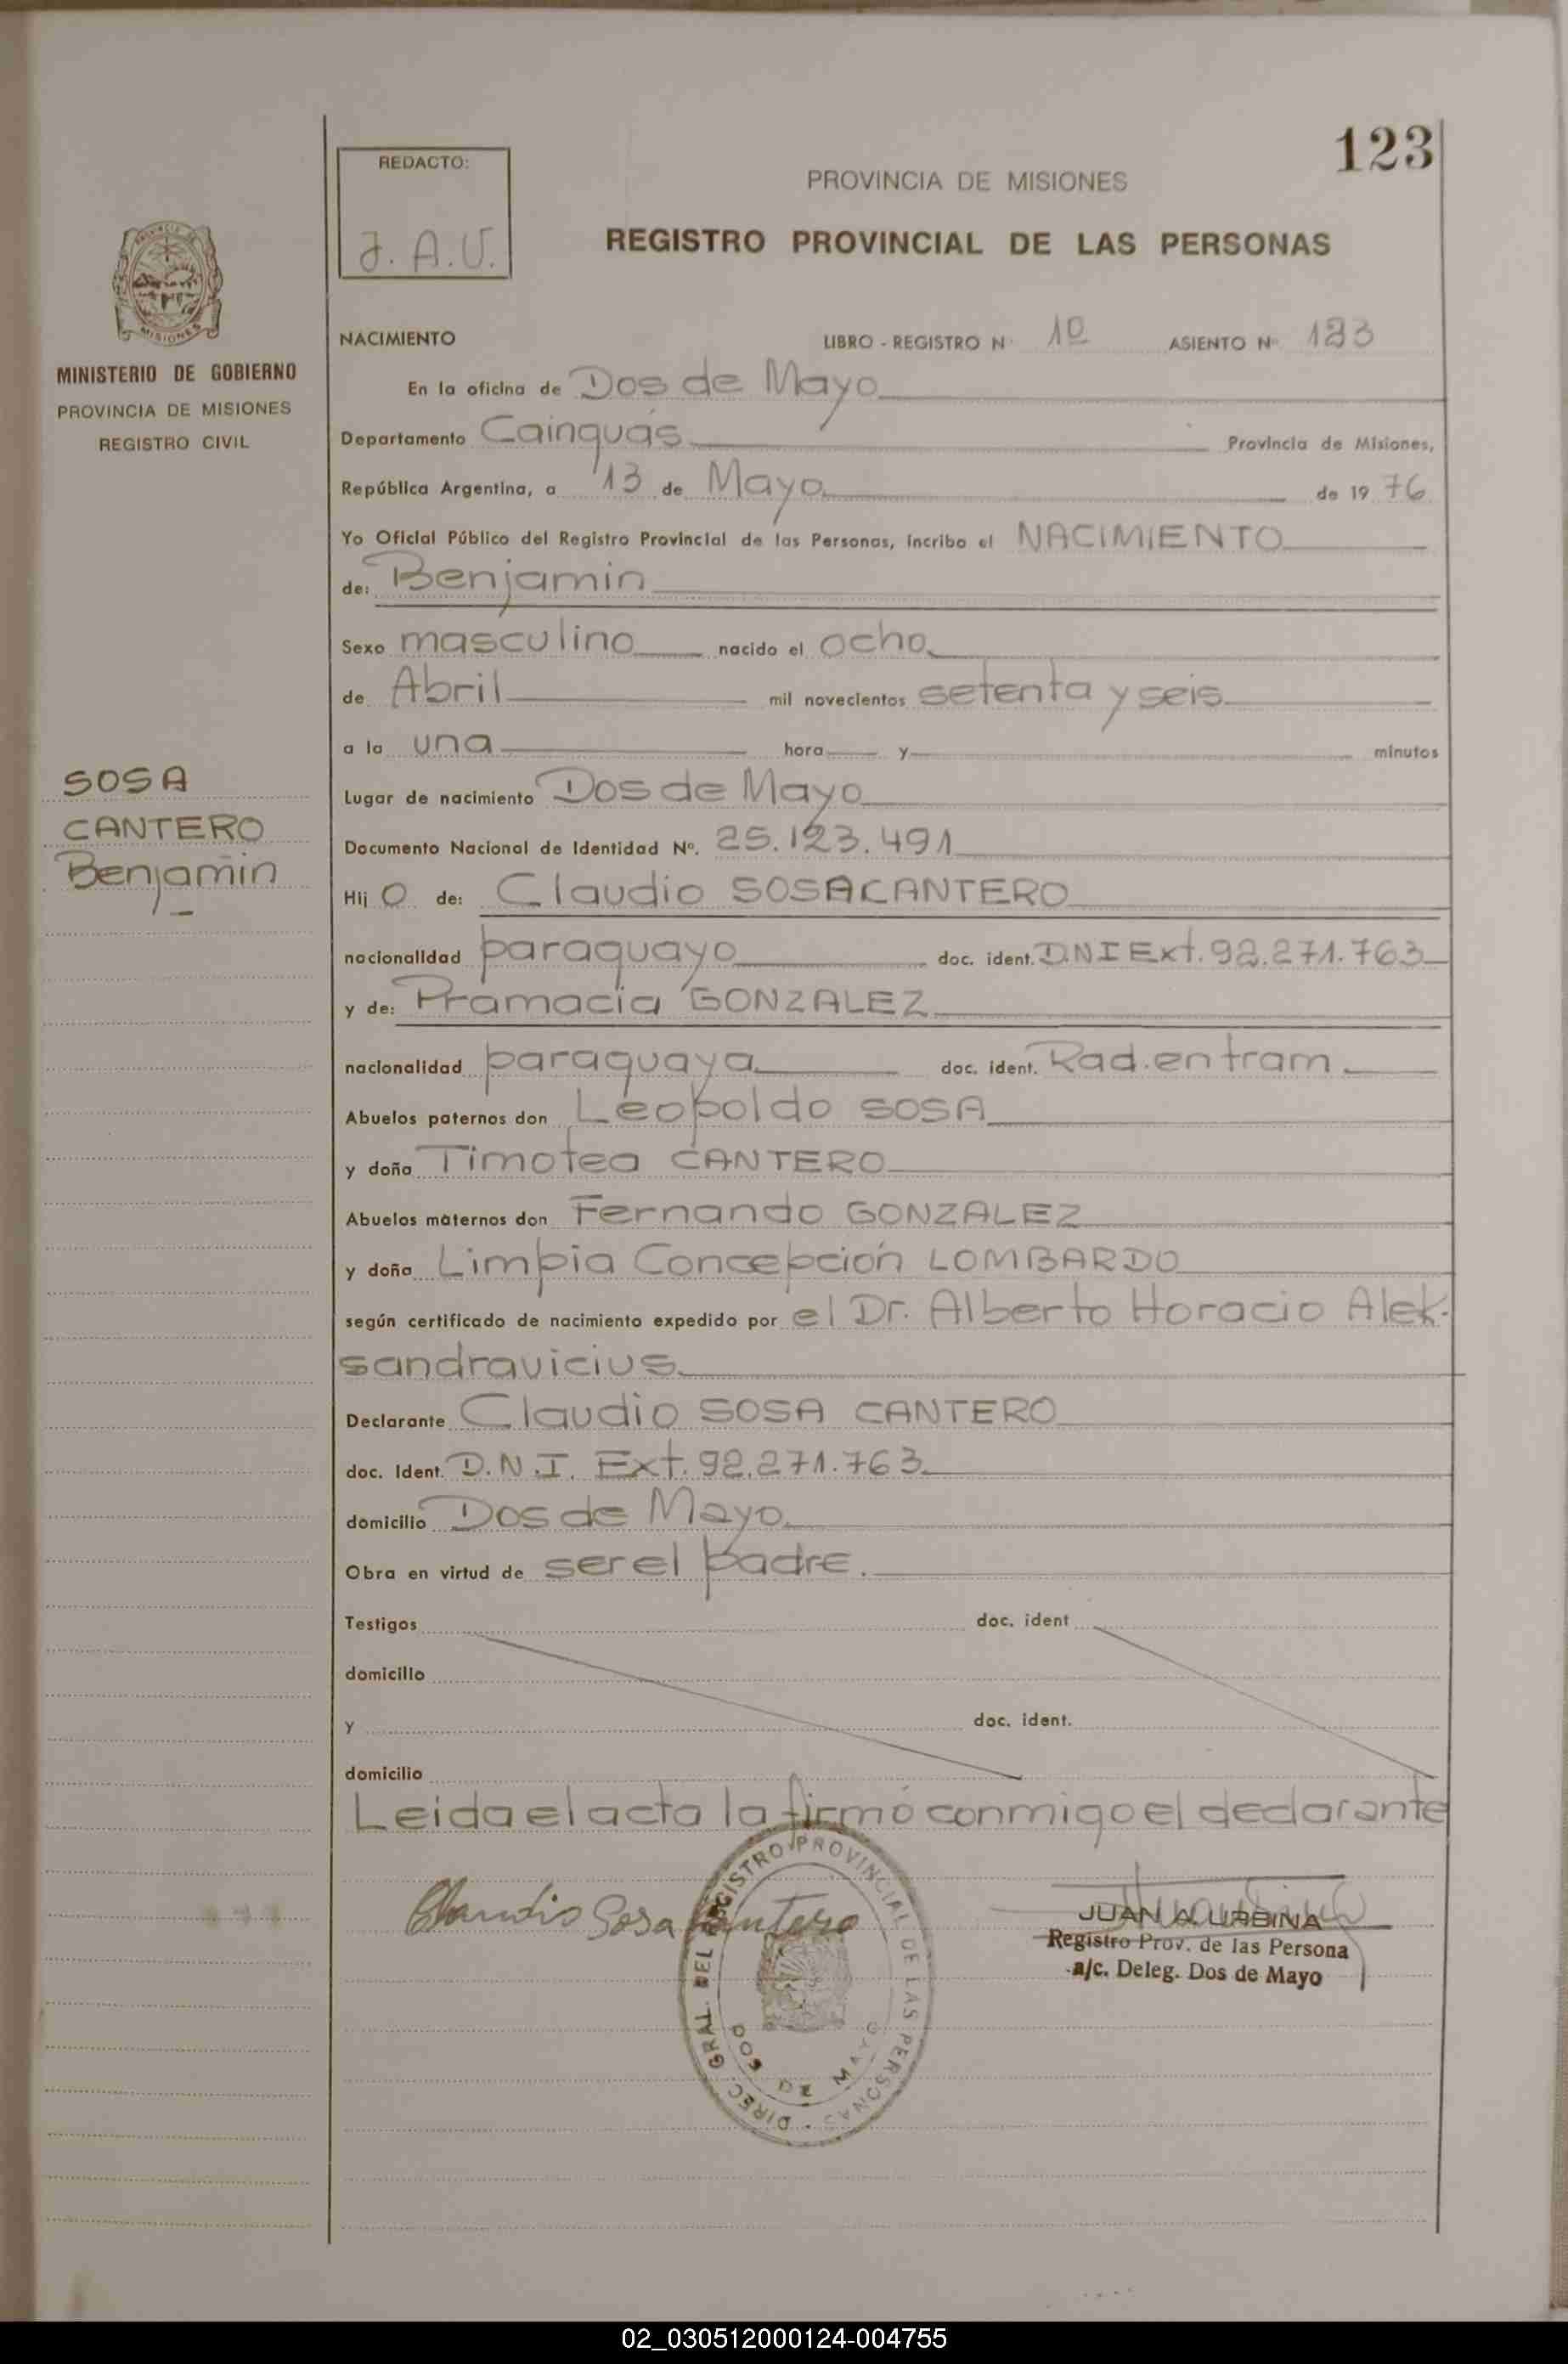 123
REDACTO:
J. A. U.
PROVINCIA DE MISIONES
REGISTRO PROVINCIAL DE LAS PERSONAS
MISIONES
MINISTERIO DE GOBIERNO
PROVINCIA DE MISIONES
REGISTRO CIVIL
NACIMIENTO LIBRO - REGISTRO Nº 1º ASIENTO Nº 123
En la oficina de Dos de Mayo
Departamento Cainguás Provincia de Misiones,
República Argentina, a 13 de Mayo de 19 76
Yo Oficial Público del Registro Provincial de las Personas, incribo el NACIMIENTO
de: Benjamin
Sexo masculino nacido el ocho
de Abril mil novecientos setenta y seis
a la una hora y minutos
SOSA
CANTERO
Benjamin
Lugar de nacimiento Dos de Mayo
Documento Nacional de Identidad Nº. 25.123.491
Hij o de: Claudio SOSA CANTERO
nacionalidad paraguayo doc. ident. D.N.I Ext. 92.271.763
y de: Pramacia GONZALEZ
nacionalidad paraguaya doc. ident. Rad. en tram.
Abuelos paternos don Leopoldo SOSA
y doña Timotea CANTERO
Abuelos maternos don Fernando GONZALEZ
y doña Limpia Concepción LOMBARDO
según certificado de nacimiento expedido por el Dr. Alberto Horacio Alek-
sandravicius
Declarante Claudio SOSA CANTERO
doc. Ident. D.N.I. Ext. 92.271.763
domicilio Dos de Mayo
Obra en virtud de ser el padre.
Testigos doc. ident
domicilio
y doc. ident.
domicilio
Leida el acta la firmó conmigo el declarante
Claudio Sosa Cantero
DIREC. GRAL. DEL REGISTRO PROVINCIAL DE LAS PERSONAS
DOS DE MAYO
JUAN A. URBINA
Registro Prov. de las Persona
a/c. Deleg. Dos de Mayo
02_030512000124-004755